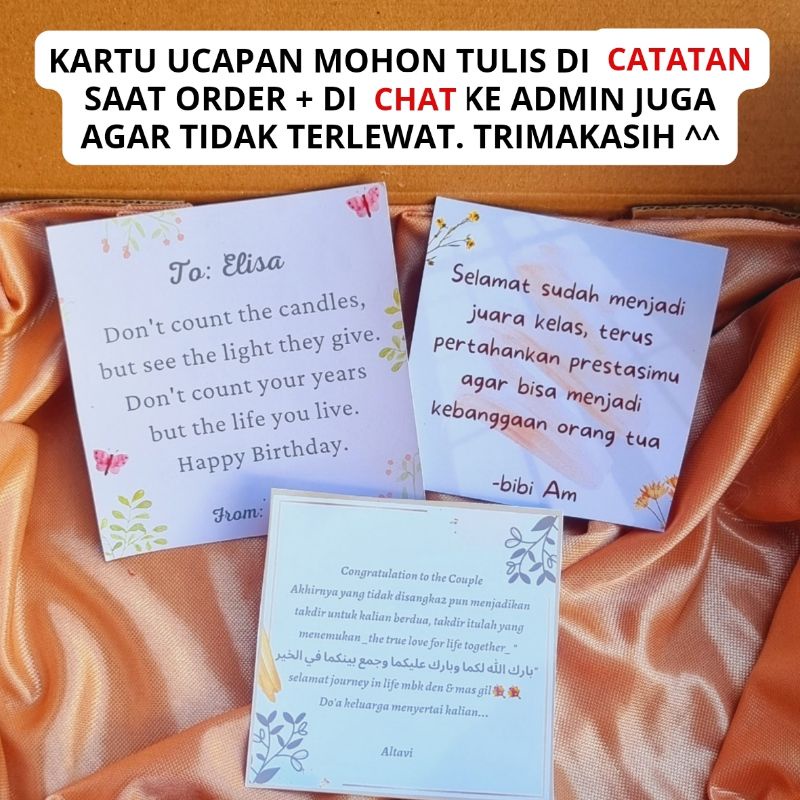 KARTU UCAPAN MOHON TULIS DI CATATAN
SAAT ORDER + DI CHAT KE ADMIN JUGA
AGAR TIDAK TERLEWAT. TRIMAKASIH ^^
To: Elisa
Don't count the candles,
but see the light they give.
Don't count your years
but the life you live.
Happy Birthday.
From:
Selamat sudah menjadi
juara kelas, terus
pertahankan prestasimu
agar bisa menjadi
kebanggaan orang tua
-bibi Am
Congratulation to the Couple
Akhirnya yang tidak disangka2 pun menjadikan
takdir untuk kalian berdua, takdir itulah yang
menemukan _the true love for life together_ "
"بارك الله لكما وبارك عليكما وجمع بينكما في الخير
selamat journey in life mbk den & mas gil💐💐
Do'a keluarga menyertai kalian...
Altavi